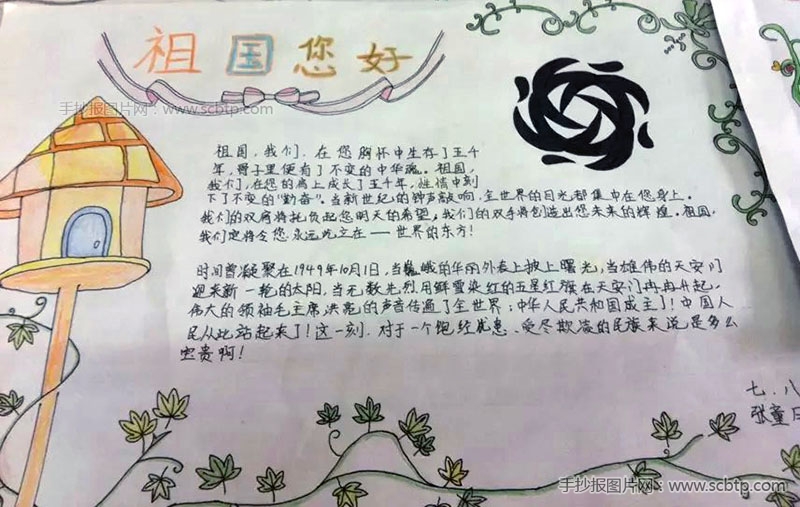 祖国您好
手抄报图片网：www.scbtp.com
祖国,我们,在您胸怀中生存了五千
年,骨子里便有了不变的中华魂。祖国,
我们,在您的肩上成长了五千年,性情中刻
下了不变的“勤奋”。当新世纪的钟声敲响,全世界的目光都集中在您身上。
我们的双肩将托负起您明天的希望,我们的双手将创造出您未来的辉煌。祖国,
我们定将令您永远屹立在——世界的东方!
时间曾凝聚在1949年10月1日,当巍峨的华丽外表上披上曙光,当雄伟的天安门
迎来新一轮的太阳,当无数先烈用鲜雪染红的五星红旗在天安门冉冉升起,
伟大的领袖毛主席洪亮的声音传遍了全世界:中华人民共和国成立了!中国人
民从此站起来了!这一刻,对于一个饱经忧患、受尽欺凌的民族来说是多么
宝贵啊!
七.八
张童
手抄报图片网：www.scbtp.com